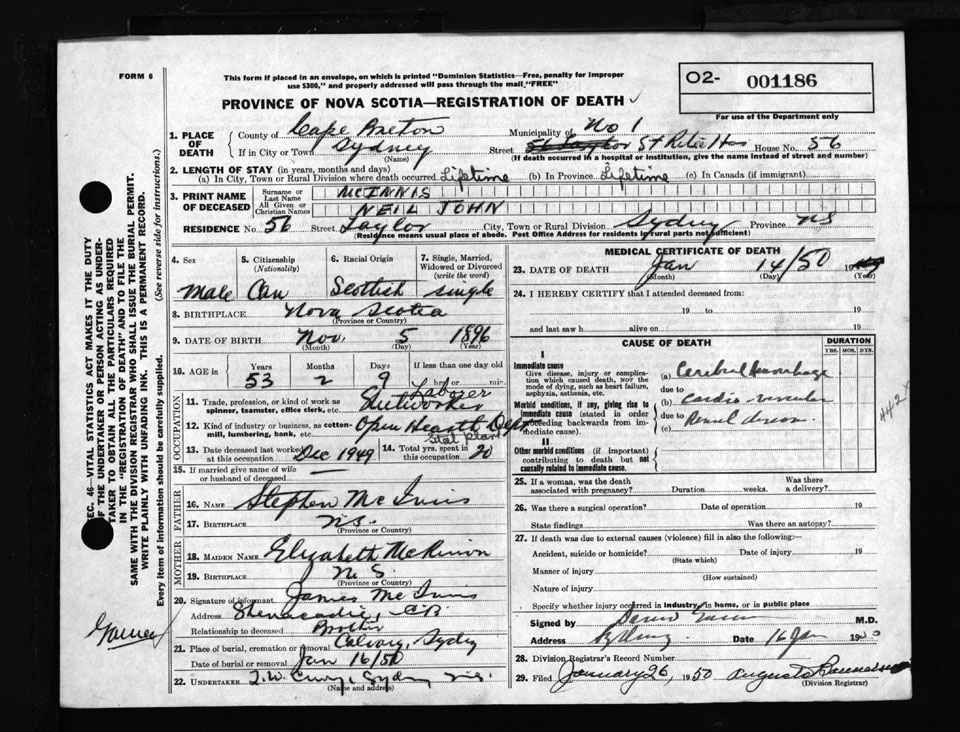 FORM 6
This form if placed in an envelope, on which is printed "Dominion Statistics—Free, penalty for improper
use $300," and properly addressed will pass through the mail, "FREE"
O2- 001186
For use of the Department only
PROVINCE OF NOVA SCOTIA—REGISTRATION OF DEATH
1. PLACE OF DEATH
County of Cape Breton Municipality of No 1
If in City or Town Sydney (Name) Street St Rita Hos House No. 56
(If death occurred in a hospital or institution, give the name instead of street and number)
2. LENGTH OF STAY (in years, months and days)
(a) In City, Town or Rural Division where death occurred Lifetime (b) In Province Lifetime (c) In Canada (if immigrant)
3. PRINT NAME OF DECEASED
Surname or Last Name MCINNIS
All Given or Christian Names NEIL JOHN
RESIDENCE No. 56 Street Taylor City, Town or Rural Division Sydney Province NS
(Residence means usual place of abode. Post Office Address for residents in rural parts not sufficient)
4. Sex
5. Citizenship (Nationality)
6. Racial Origin
7. Single, Married, Widowed or Divorced (write the word)
Male Can Scottish single
8. BIRTHPLACE Nova Scotia
(Province or Country)
9. DATE OF BIRTH Nov. 5 1896
(Month) (Day) (Year)
10. AGE in Years Months Days If less than one day old
53 2 9 hrs. or min.
OCCUPATION
11. Trade, profession, or kind of work as spinner, teamster, office clerk, etc. Labourer
12. Kind of industry or business, as cotton-mill, lumbering, bank, etc. Open Hearth Dept
13. Date deceased last worked at this occupation Dec 1949
14. Total yrs. spent in this occupation 20
15. If married give name of wife or husband of deceased
FATHER
16. NAME Stephen McInnis
17. BIRTHPLACE N.S.
(Province or Country)
MOTHER
18. MAIDEN NAME Elizabeth McKinnon
19. BIRTHPLACE N.S.
(Province or Country)
20. Signature of informant James McInnis
Address Shenacadie, C.B.
Relationship to deceased Brother
21. Place of burial, cremation or removal Calvary, Sydney
Date of burial or removal Jan 16/50
22. UNDERTAKER T.W. Curry, Sydney N.S.
(Name and address)
MEDICAL CERTIFICATE OF DEATH
23. DATE OF DEATH Jan 14/50 19
(Month) (Day) (Year)
24. I HEREBY CERTIFY that I attended deceased from:
19 to 19
and last saw h alive on 19
CAUSE OF DEATH
DURATION
YRS. MOS. DYS.
I
Immediate cause
Give disease, injury or complication which caused death, not the mode of dying, such as heart failure, asphyxia, asthenia, etc.
(a) Cerebral Hemorrhage
due to
Morbid conditions, if any, giving rise to immediate cause (stated in order proceeding backwards from immediate cause).
(b) cardio-vascular
due to
(c) Renal disease
442X
II
Other morbid conditions (if important) contributing to death but not causally related to immediate cause.
25. If a woman, was the death associated with pregnancy? Duration weeks. Was there a delivery?
26. Was there a surgical operation? Date of operation 19
State findings Was there an autopsy?
27. If death was due to external causes (violence) fill in also the following:
Accident, suicide or homicide? (State which) Date of injury 19
Manner of injury (How sustained)
Nature of injury
Specify whether injury occurred in industry, in home, or in public place
Signed by M.D.
Address Sydney Date 16 Jan 1950
28. Division Registrar's Record Number
29. Filed January 26, 1950
(Division Registrar)
SEC. 46—VITAL STATISTICS ACT MAKES IT THE DUTY
OF THE UNDERTAKER OR PERSON ACTING AS UNDER-
TAKER TO OBTAIN ALL THE PARTICULARS REQUIRED
IN THE "REGISTRATION OF DEATH" AND TO FILE THE
SAME WITH THE DIVISION REGISTRAR WHO SHALL ISSUE THE BURIAL PERMIT.
WRITE PLAINLY WITH UNFADING INK. THIS IS A PERMANENT RECORD.
Every item of information should be carefully supplied. (See reverse side for instructions.)